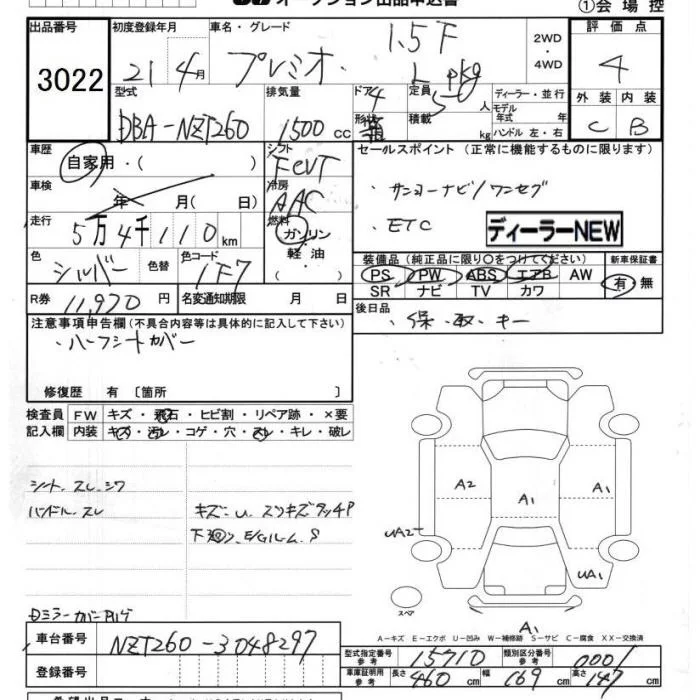 オークション出品申込書
①会場控
出品番号 3022
初度登録年月 21 4月
車名・グレード プレミオ 1.5F Lpkg
2WD・4WD
評価点 4
型式 DBA-NZT260
排気量 1500cc
ドア 4 形状 箱
定員 5人
積載 kg
ディーラー・並行
モデル年式 年
ハンドル 左・右
外装 C 内装 B
車歴 自家用・( )
シフト FCVT
セールスポイント (正常に機能するものに限ります)
車検 年 月( 日)
冷房 AAC
・サンヨーナビ/ワンセグ
走行 5万4千110km
燃料 ガソリン 軽油 ( )
・ETC
ディーラーNEW
色 シルバー 色替 色コード 1F7
装備品 (純正品に限り○をつけてください)
新車保証書 有・無
PS PW ABS エアB AW
SR ナビ TV カワ
R券 11,970円 名変通知期限 月 日
後日品 ・保・取・キー
注意事項申告欄(不具合内容等は具体的に記入して下さい)
・ハーフシートカバー
修復歴 有 〔箇所 〕
検査員記入欄
FW キズ・飛石・ヒビ割・リペア跡・×要
内装 キズ・汚レ・コゲ・穴・スレ・キレ・破レ
シート、スレ、シワ
ハンドル、スレ
キズ U スリキズタッチP
下回り、E/Gルーム S
DミラーカバーP
A2
A1
A1
UA2
UA1
スペア
A1
A－キズ E－エクボ U－凹み W－補修跡 S－サビ C－腐食 XX－交換済
車台番号 NZT260-3048297
型式指定番号 参考 15710
類別区分番号 参考 0001
登録番号
車庫証明用 参考 長さ 460cm 幅 169cm 高さ 147cm